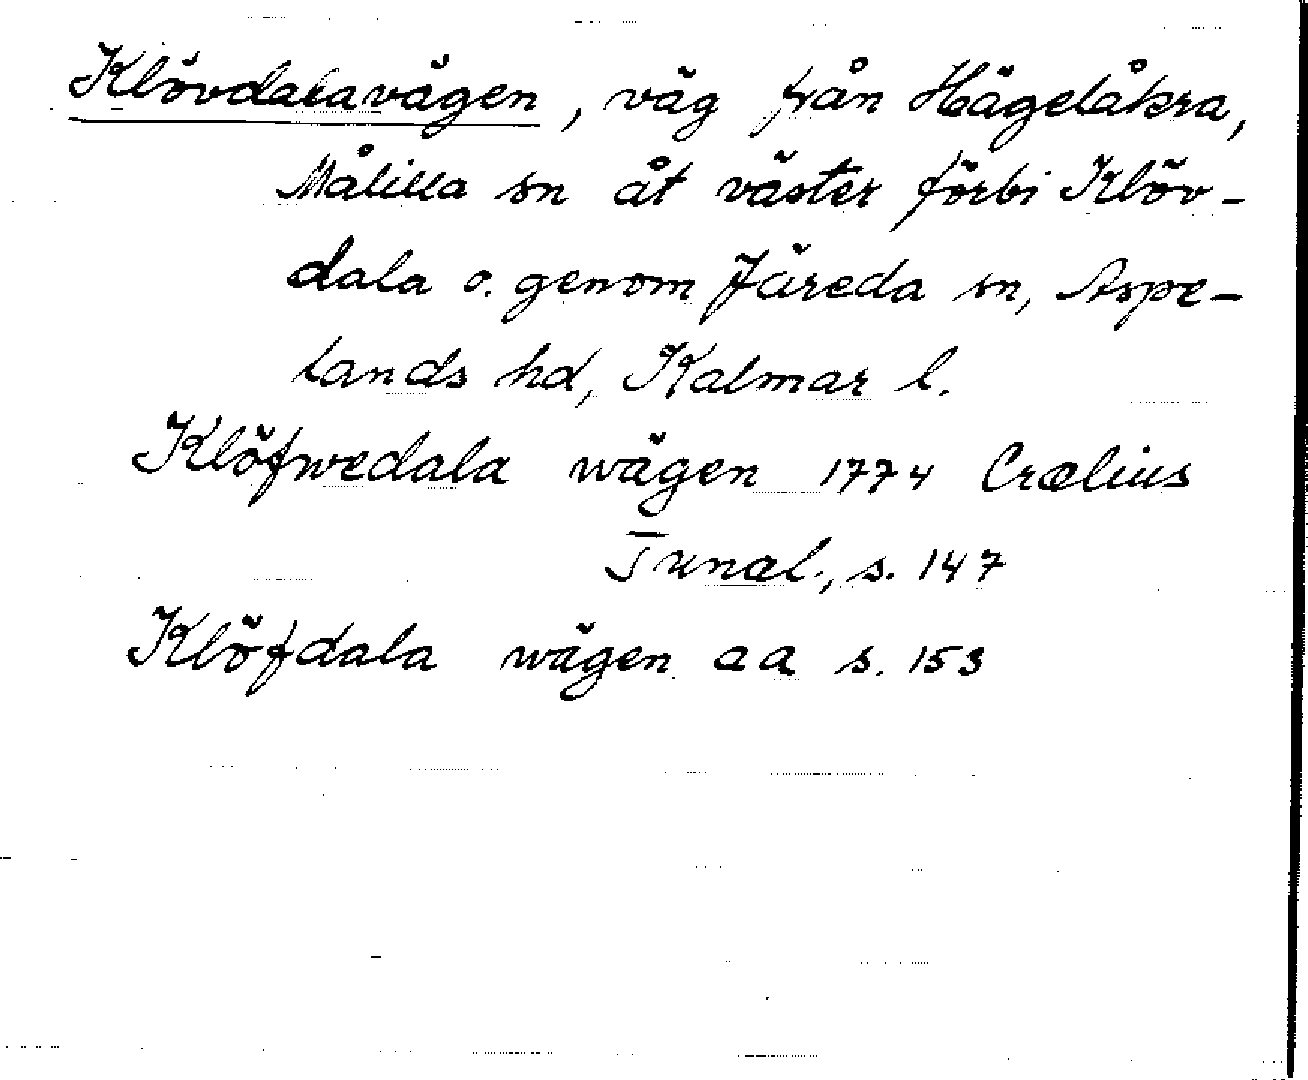 Klövdalavägen, väg från Hägelåkra,
Målilla sn åt väster förbi Klöv-
dala o. genom Järeda sn, Aspe-
lands hd, Kalmar l.
Klöfwedala wägen 1774 Crælius
Tunal., s. 147
Klöfdala wägen aa s. 153